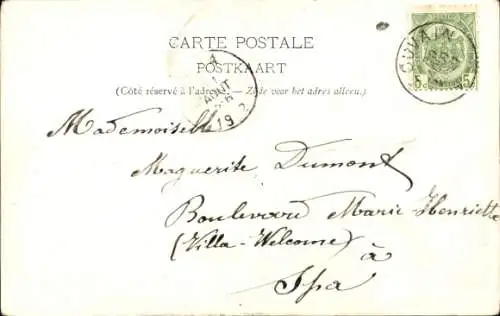 CARTE POSTALE
POSTKAART
(Côté réservé à l'adresse) — Zijde voor het adres alleen.)
AOUT
19
5 5
Mademoiselle
Marguerite Dumont
Boulevard Marie-Henriette
(Villa-Welcome)
à
Spa